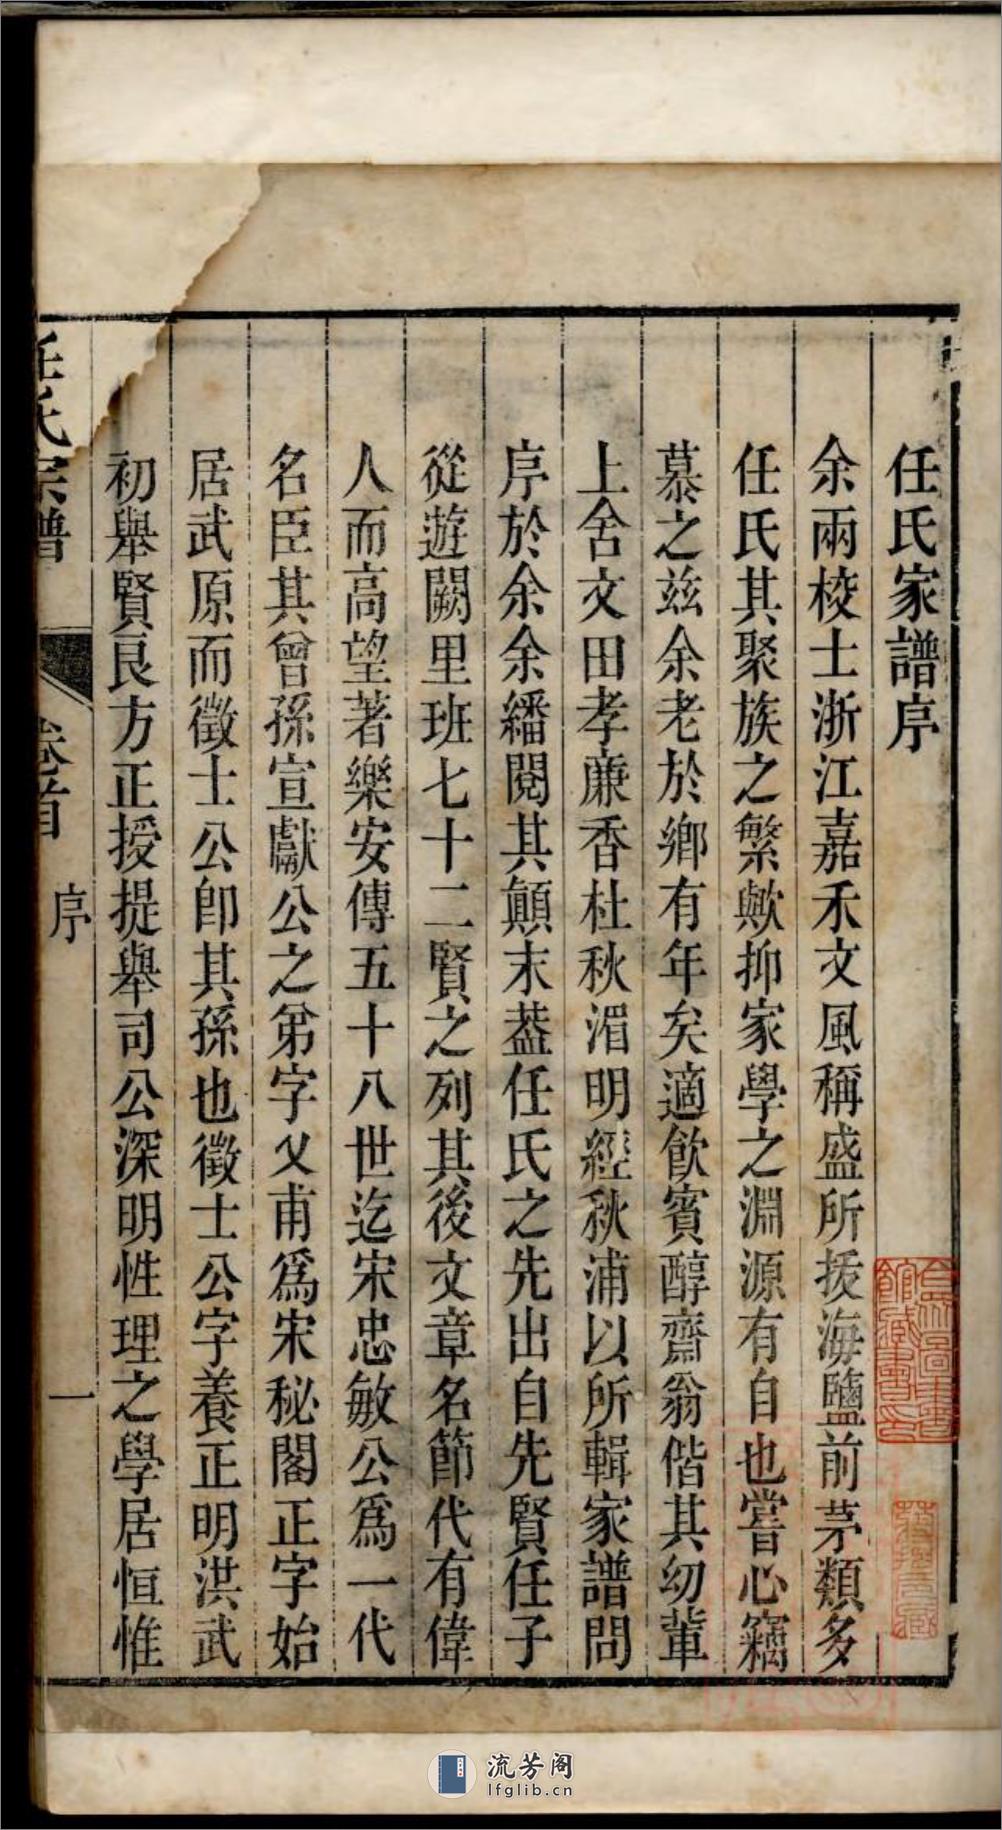 任氏家譜序
余兩校士浙江嘉禾文風稱盛所拔海鹽前茅類多
任氏其聚族之繁歟抑家學之淵源有自也嘗心竊
慕之茲余老於鄉有年矣適飲賓醇齋翁偕其幼輩
上舍文田孝廉香杜秋湄明經秋浦以所輯家譜問
序於余余繙閱其顛末葢任氏之先出自先賢任子
從遊闕里班七十二賢之列其後文章名節代有偉
人而高望著樂安傳五十八世迄宋忠敏公爲一代
名臣其曾孫宣獻公之弟字乂甫爲宋秘閣正字始
居武原而徵士公卽其孫也徵士公字養正明洪武
初舉賢良方正授提舉司公深明性理之學居恒惟
任氏宗譜
卷首
序
一
流芳阁
lfglib.cn